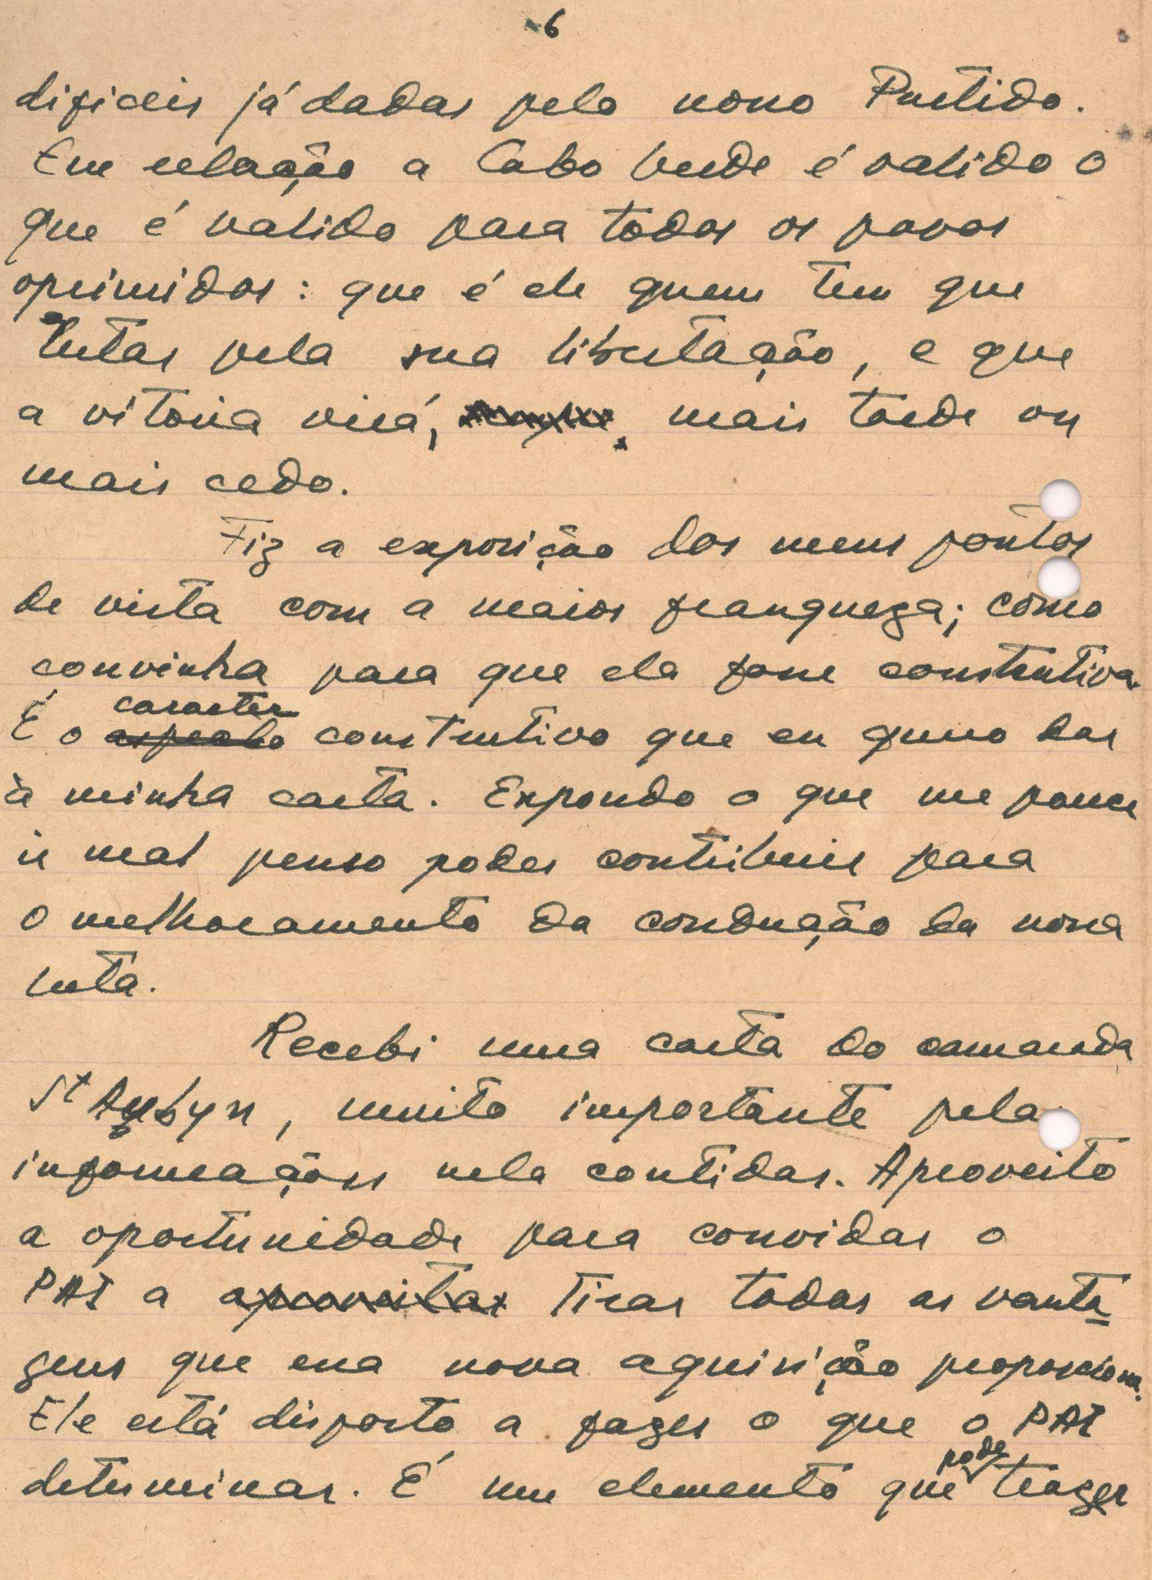 6
dificeis já dadas pelo nosso Partido.
Em relação a Cabo Verde é valido o
que é valido para todos os povos
oprimidos: que é ele quem tem que
lutar pela sua libertação, e que
a vitoria virá, mais tarde ou
mais cedo.
Fiz a exposição dos meus pontos
de vista com a maior franqueza; como
convinha para que ela fosse construtiva.
caracter
É o aspecto construtivo que eu quero dar
à minha carta. Expondo o que me parece
ir mal penso poder contribuir para
o melhoramento da condução da nossa
luta.
Recebi uma carta do camarada
St Aubyn, muito importante pela
informações nela contidas. Aproveito
a oportunidade para convidar o
PAI a aproveitar tirar todas as vanta
gens que essa nova aquisição proporciona.
Ele está disposto a fazer o que o PAI
pode
determinar. É um elemento que trazer